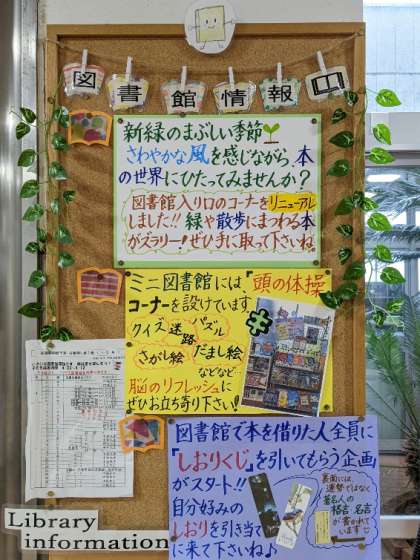 図書館情報
新緑のまぶしい季節
さわやかな風を感じながら、本
の世界にひたってみませんか？
図書館入り口のコーナーをリニューアル
しました!! 緑や散歩にまつわる本
がズラリー！ぜひ手に取って下さいね
ミニ図書館には、「頭の体操」
コーナーを設けています。
クイズ 迷路 パズル
さがし絵 だまし絵
などなど…
脳のリフレッシュに
ぜひお立ち寄り下さい!!
図書館で本を借りた人全員に
「しおりくじ」を引いてもらう企画
がスタート!!
自分好みの
しおりを引き当て
に来て下さいね♪
裏面には
運勢ではなく
著名人の
格言 名言
が書かれて
います
Library
information